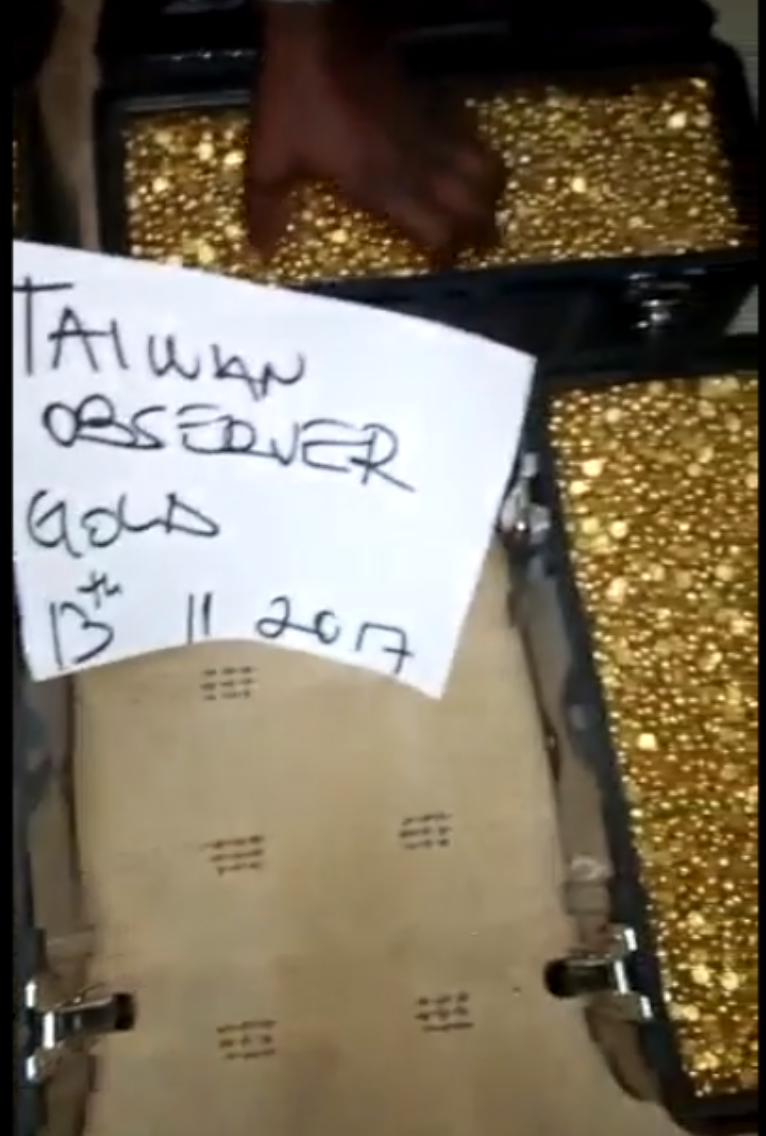 TAIWAN
OBSERVER
GOLD
13th 11 2017